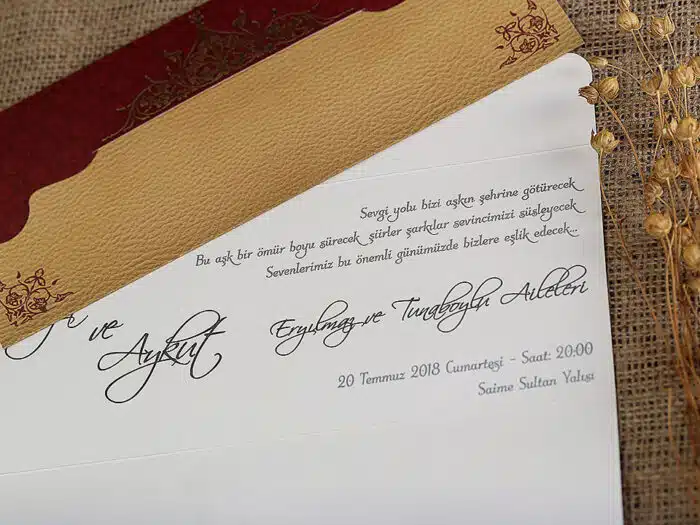 Sevgi yolu bizi aşkın şehrine götürecek
Bu aşk bir ömür boyu sürecek şiirler şarkılar sevincimizi süsleyecek
Sevenlerimiz bu önemli günümüzde bizlere eşlik edecek...
ve
Aykut
Eryılmaz ve Tunaboylu Aileleri
20 Temmuz 2018 Cumartesi - Saat: 20:00
Saime Sultan Yalısı